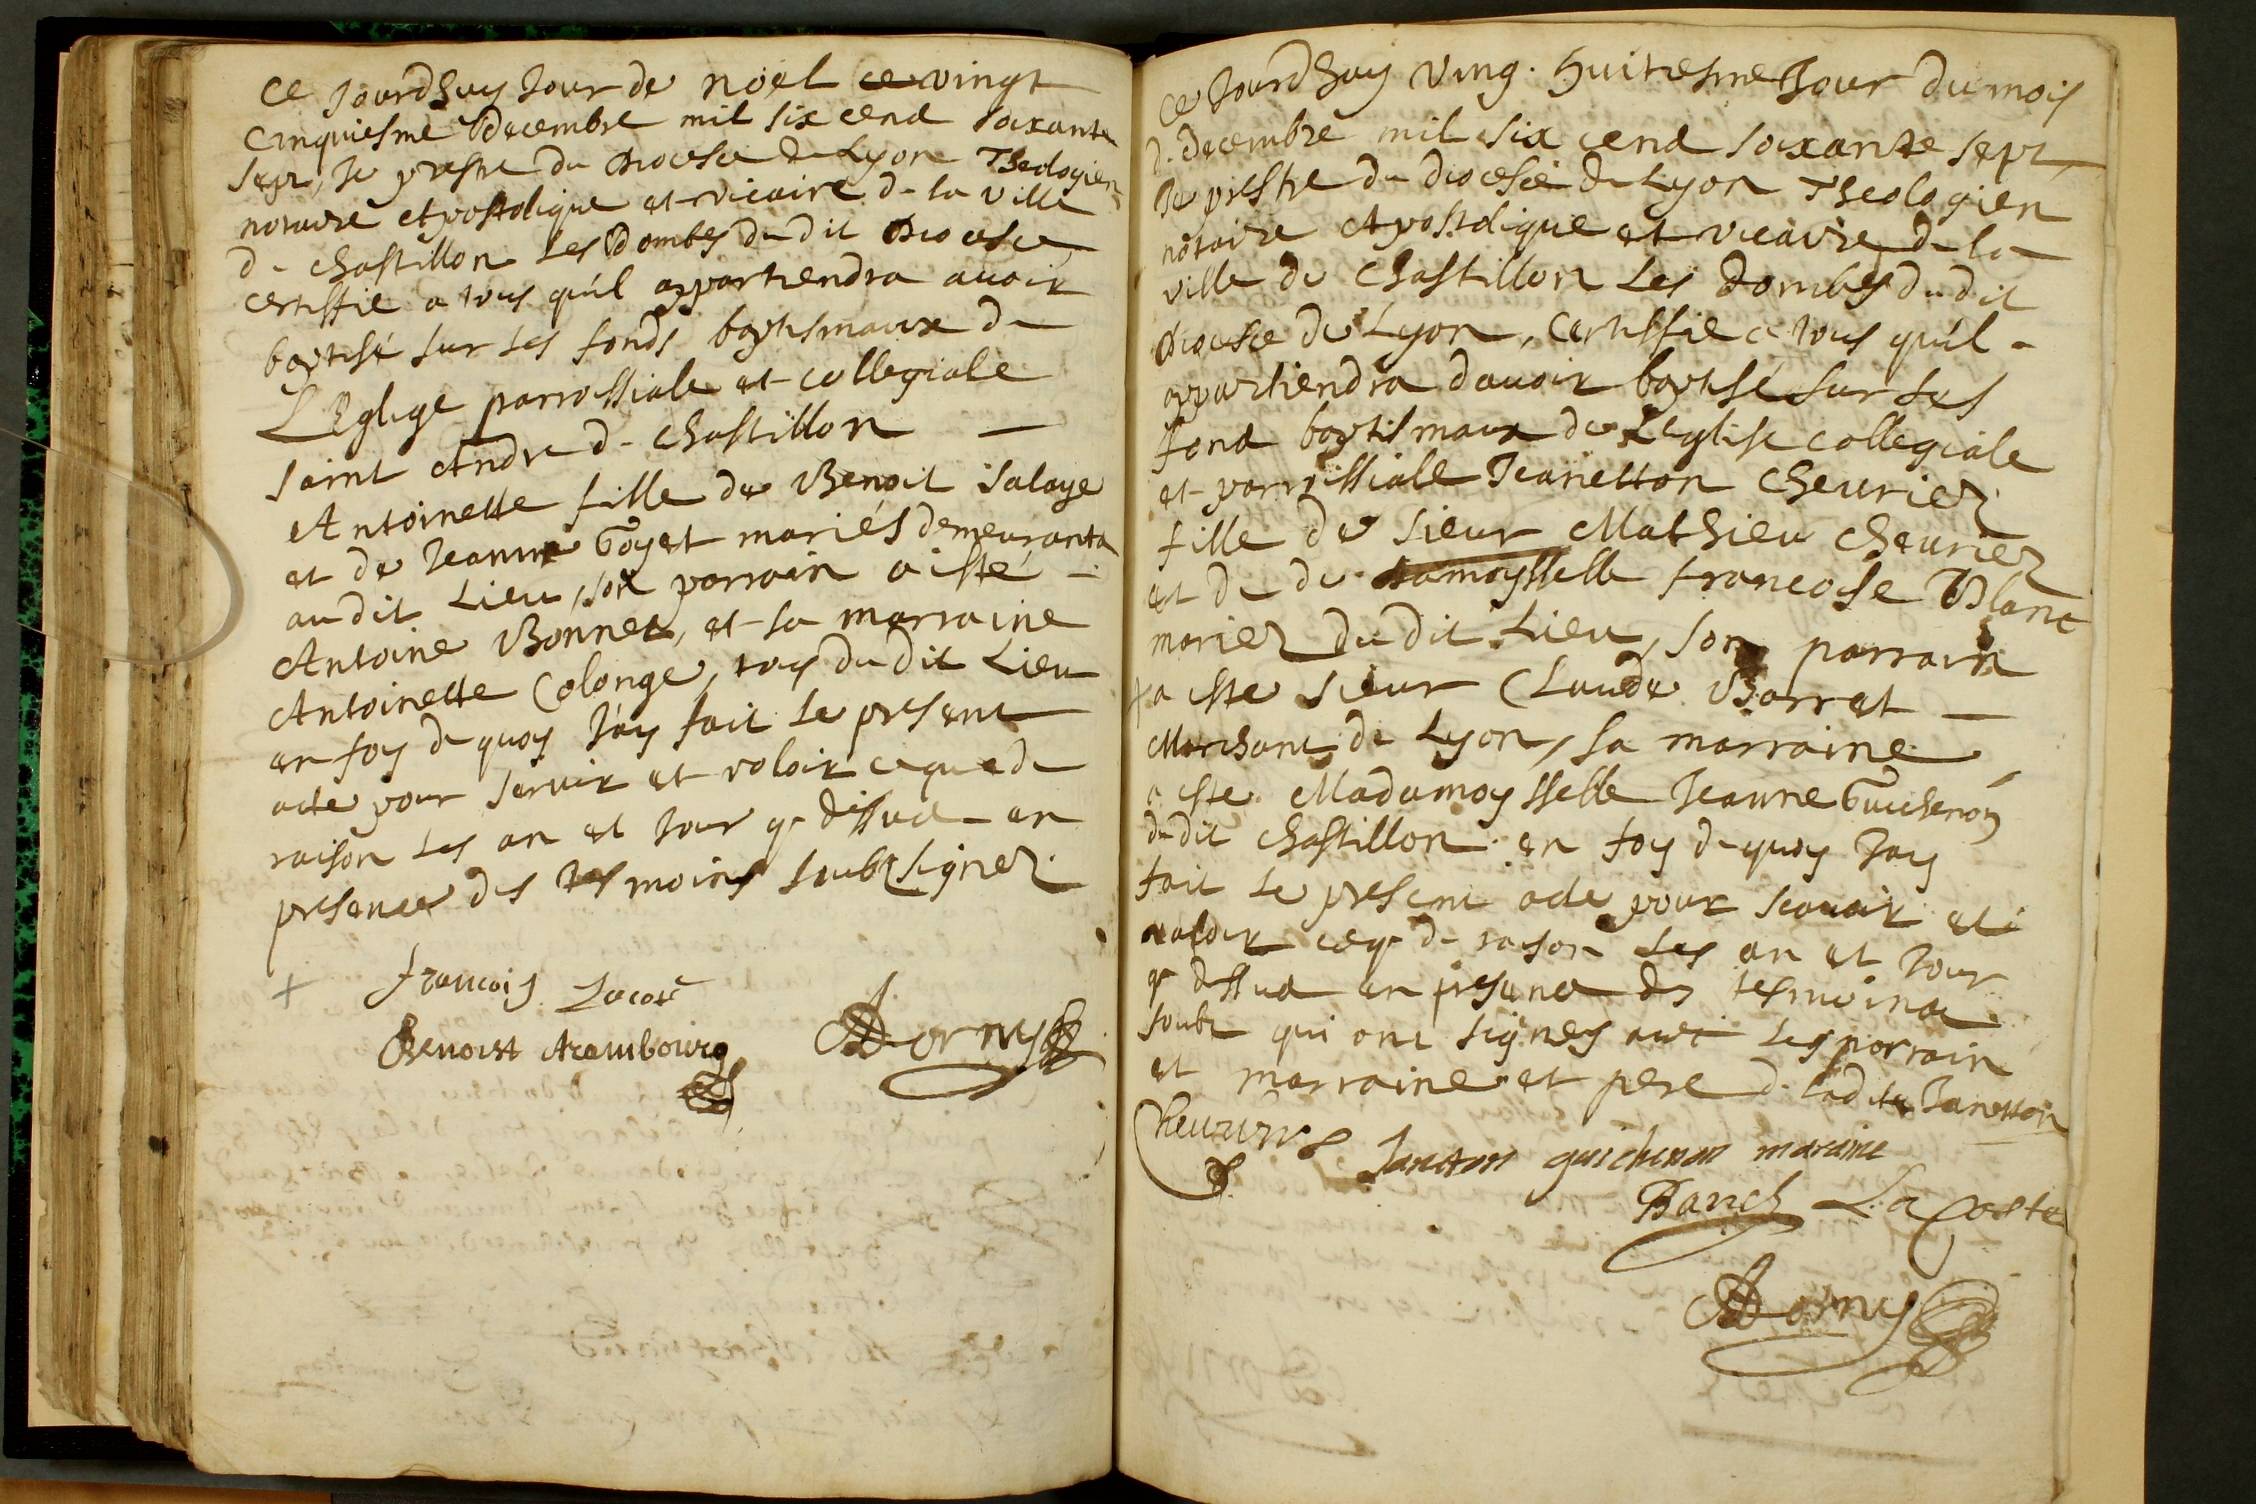 ce Jourdhuy Jour de noel ce vingt
cinquiesme decembre mil six cend soixante
sept, Je prestre du Diocese de Lyon Theologien
notaire Apostolique et vicaire de la ville
de chastillon les dombes du dit Diocese
certiffie a tous qu'il appartiendra avoir
baptisé sur les fonds baptismaux de
L'Eglige parrossiale et collegiale
saint Andre de chastillon —
Antoinette fille de Benoit Salaye
et de Jeanne Goyet mariés demeurants
au dit Lieu, son parrain a esté -
Antoine Bonnet, et sa marraine
Antoinette Colonge, tous du dit Lieu
en foy de quoy J'ay fait le present
acte pour servir et valoir ce que de
raison les an et Jour que dessud en
presence des tesmoins soubz signez.
+ francois Lacoste
Benoist Arambourg
Dorny
ce Jourdhuy ving. huitiesme Jour du mois
de decembre mil six cend soixante sept,
Je prestre du diocese de Lyon Theologien
notaire Apostolique et vicaire de la
ville de Chastillon Les dombes du dit
Diocese de Lyon, certiffie a tous qu'il -
appartiendra d'avoir baptisé sur les
fond baptismaux de L'eglise collegiale
et parroissiale Jeanetton Chevriez
fille de sieur Mathieu chevriez
et de de damoysselle francoise Blanc
mariez du dit Lieu, son parrain
+ a este sieur Claude Barret —
Marchant de Lyon, sa marraine
a este Madamoysselle Jeanne Guichenon
du dit chastillon. en foy de quoy Jay
fait le present acte pour scavoir et
valoir ce que de raison Les an et Jour
que dessud en presence des tesmoins
soubz qui ont signes avec les parrain
et marraine et pere de ladite Janetton
Chevrier Janeton guichenon maraine
La Coste
Dorny